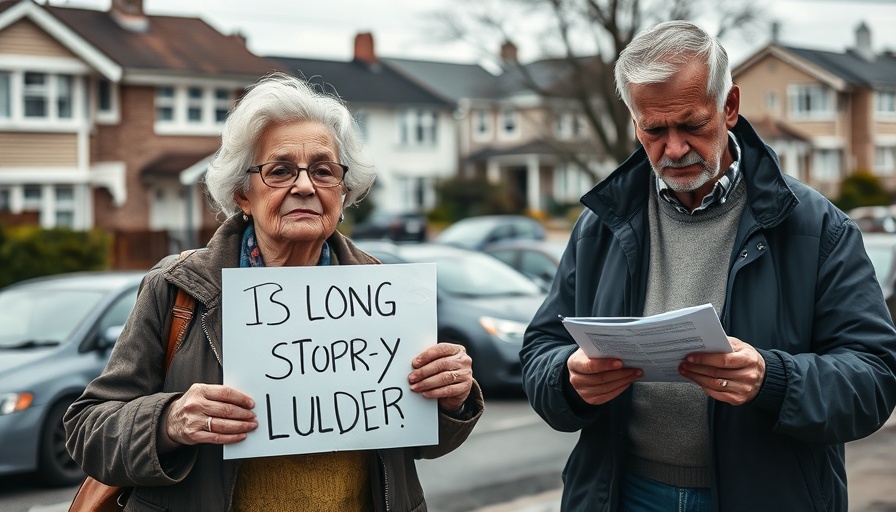 IS LONG
STOPR-Y
LULDER.